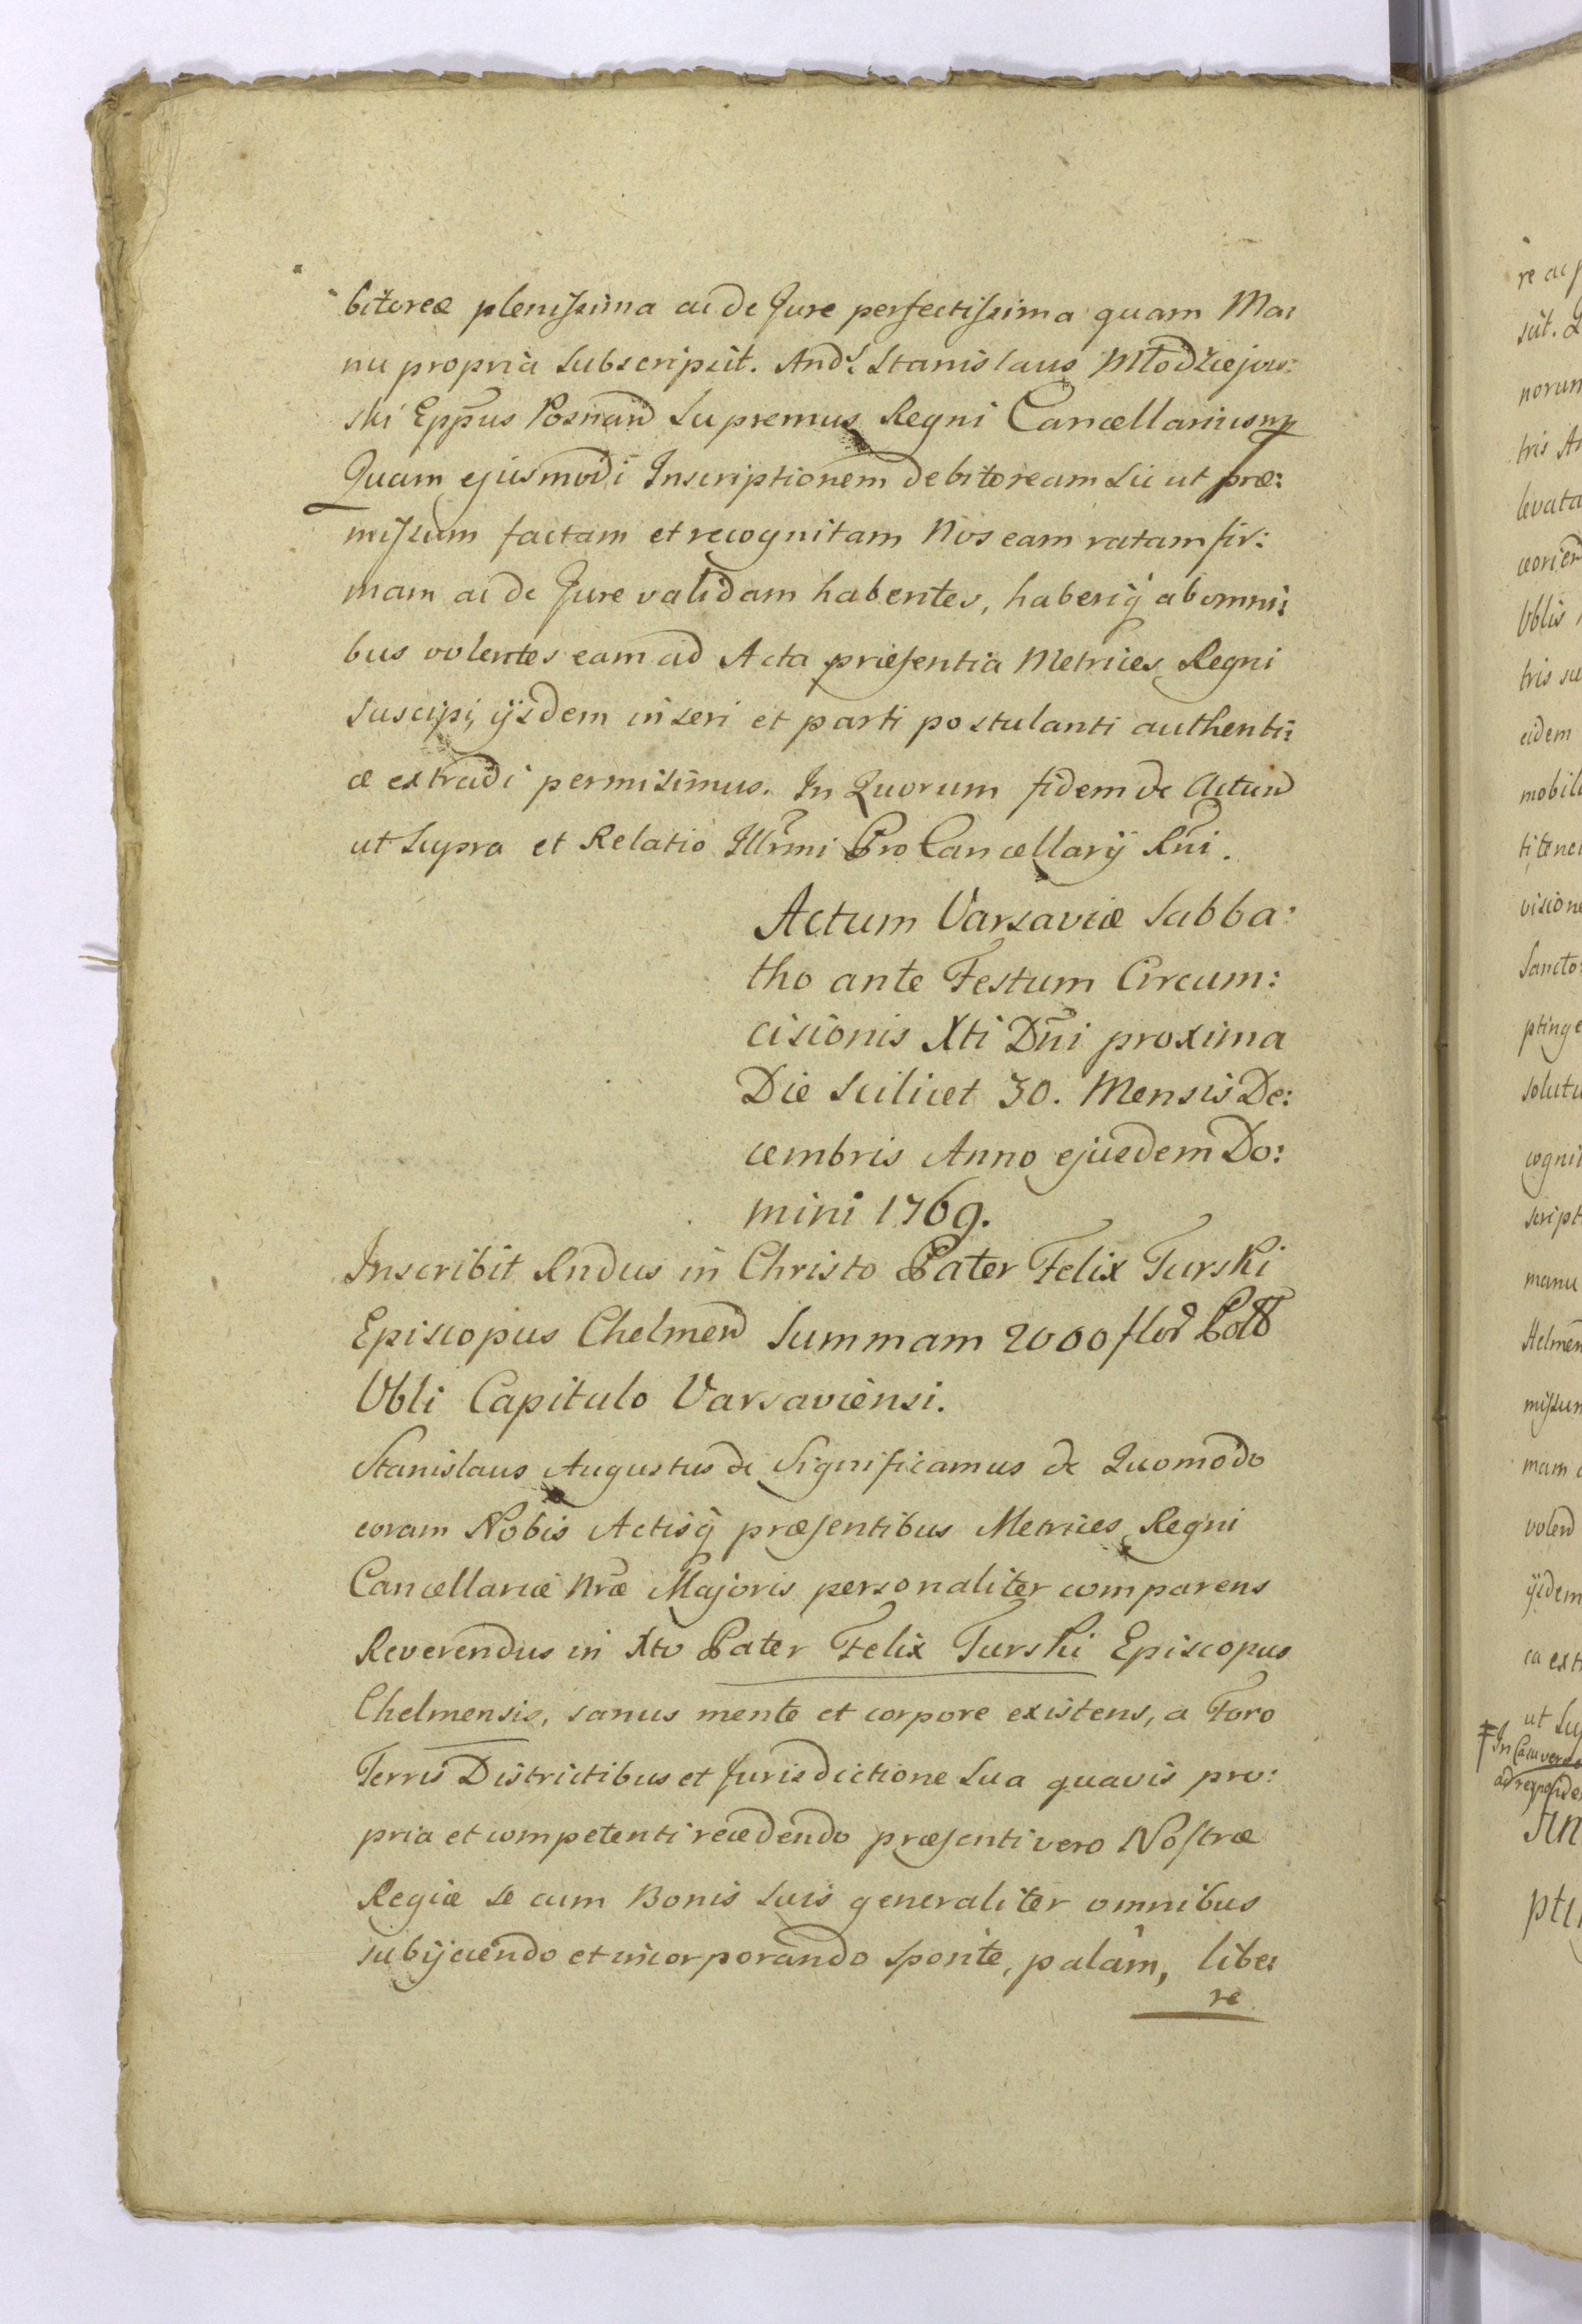 bitoreæ plenissima ac de Jure perfectissima quam Ma:
nu propria subscripsit. Andr: Stanislaus Młodziejow:
ski Eppus Posnan Supremus Regni Cancellarius mp
Quam ejusmodi Inscriptionem debitoream sic ut præ:
missum factam et recognitam Nos eam ratam fir:
mam ac de Jure validam habentes, haberiq ab omni:
bus volentes eam ad Acta præsentia Metrices Regni
suscipi, ijsdem inseri et parti postulanti authenti:
ce extradi permisimus. In Quorum fidem &c Actum
ut supra et Relatio Illrmi ProCancellarij Rni.
Actum Varsaviæ Sabba:
tho ante Festum Circum:
cisionis Xti Dni proxima
Die scilicet 30. Mensis De:
cembris Anno ejusdem Do:
mini 1769.
Inscribit Rndus in Christo Pater Felix Turski
Episcopus Chelmen Summam 2000 flor Poll
Vbli Capitulo Varsaviensi.
Stanislaus Augustus &c Significamus &c Quomodo
coram Nobis Actisq præsentibus Metrices Regni
Cancellariæ Nræ Majoris personaliter comparens
Reverendus in Xto Pater Felix Turski Episcopus
Chelmensis, sanus mente et corpore existens, a Foro
Terris Districtibus et Jurisdictione sua quavis pro:
pria et competenti recedendo præsenti vero Nostræ
Regiæ se cum Bonis suis generaliter omnibus
subijciendo et incorporando sponte, palam, libe:
re